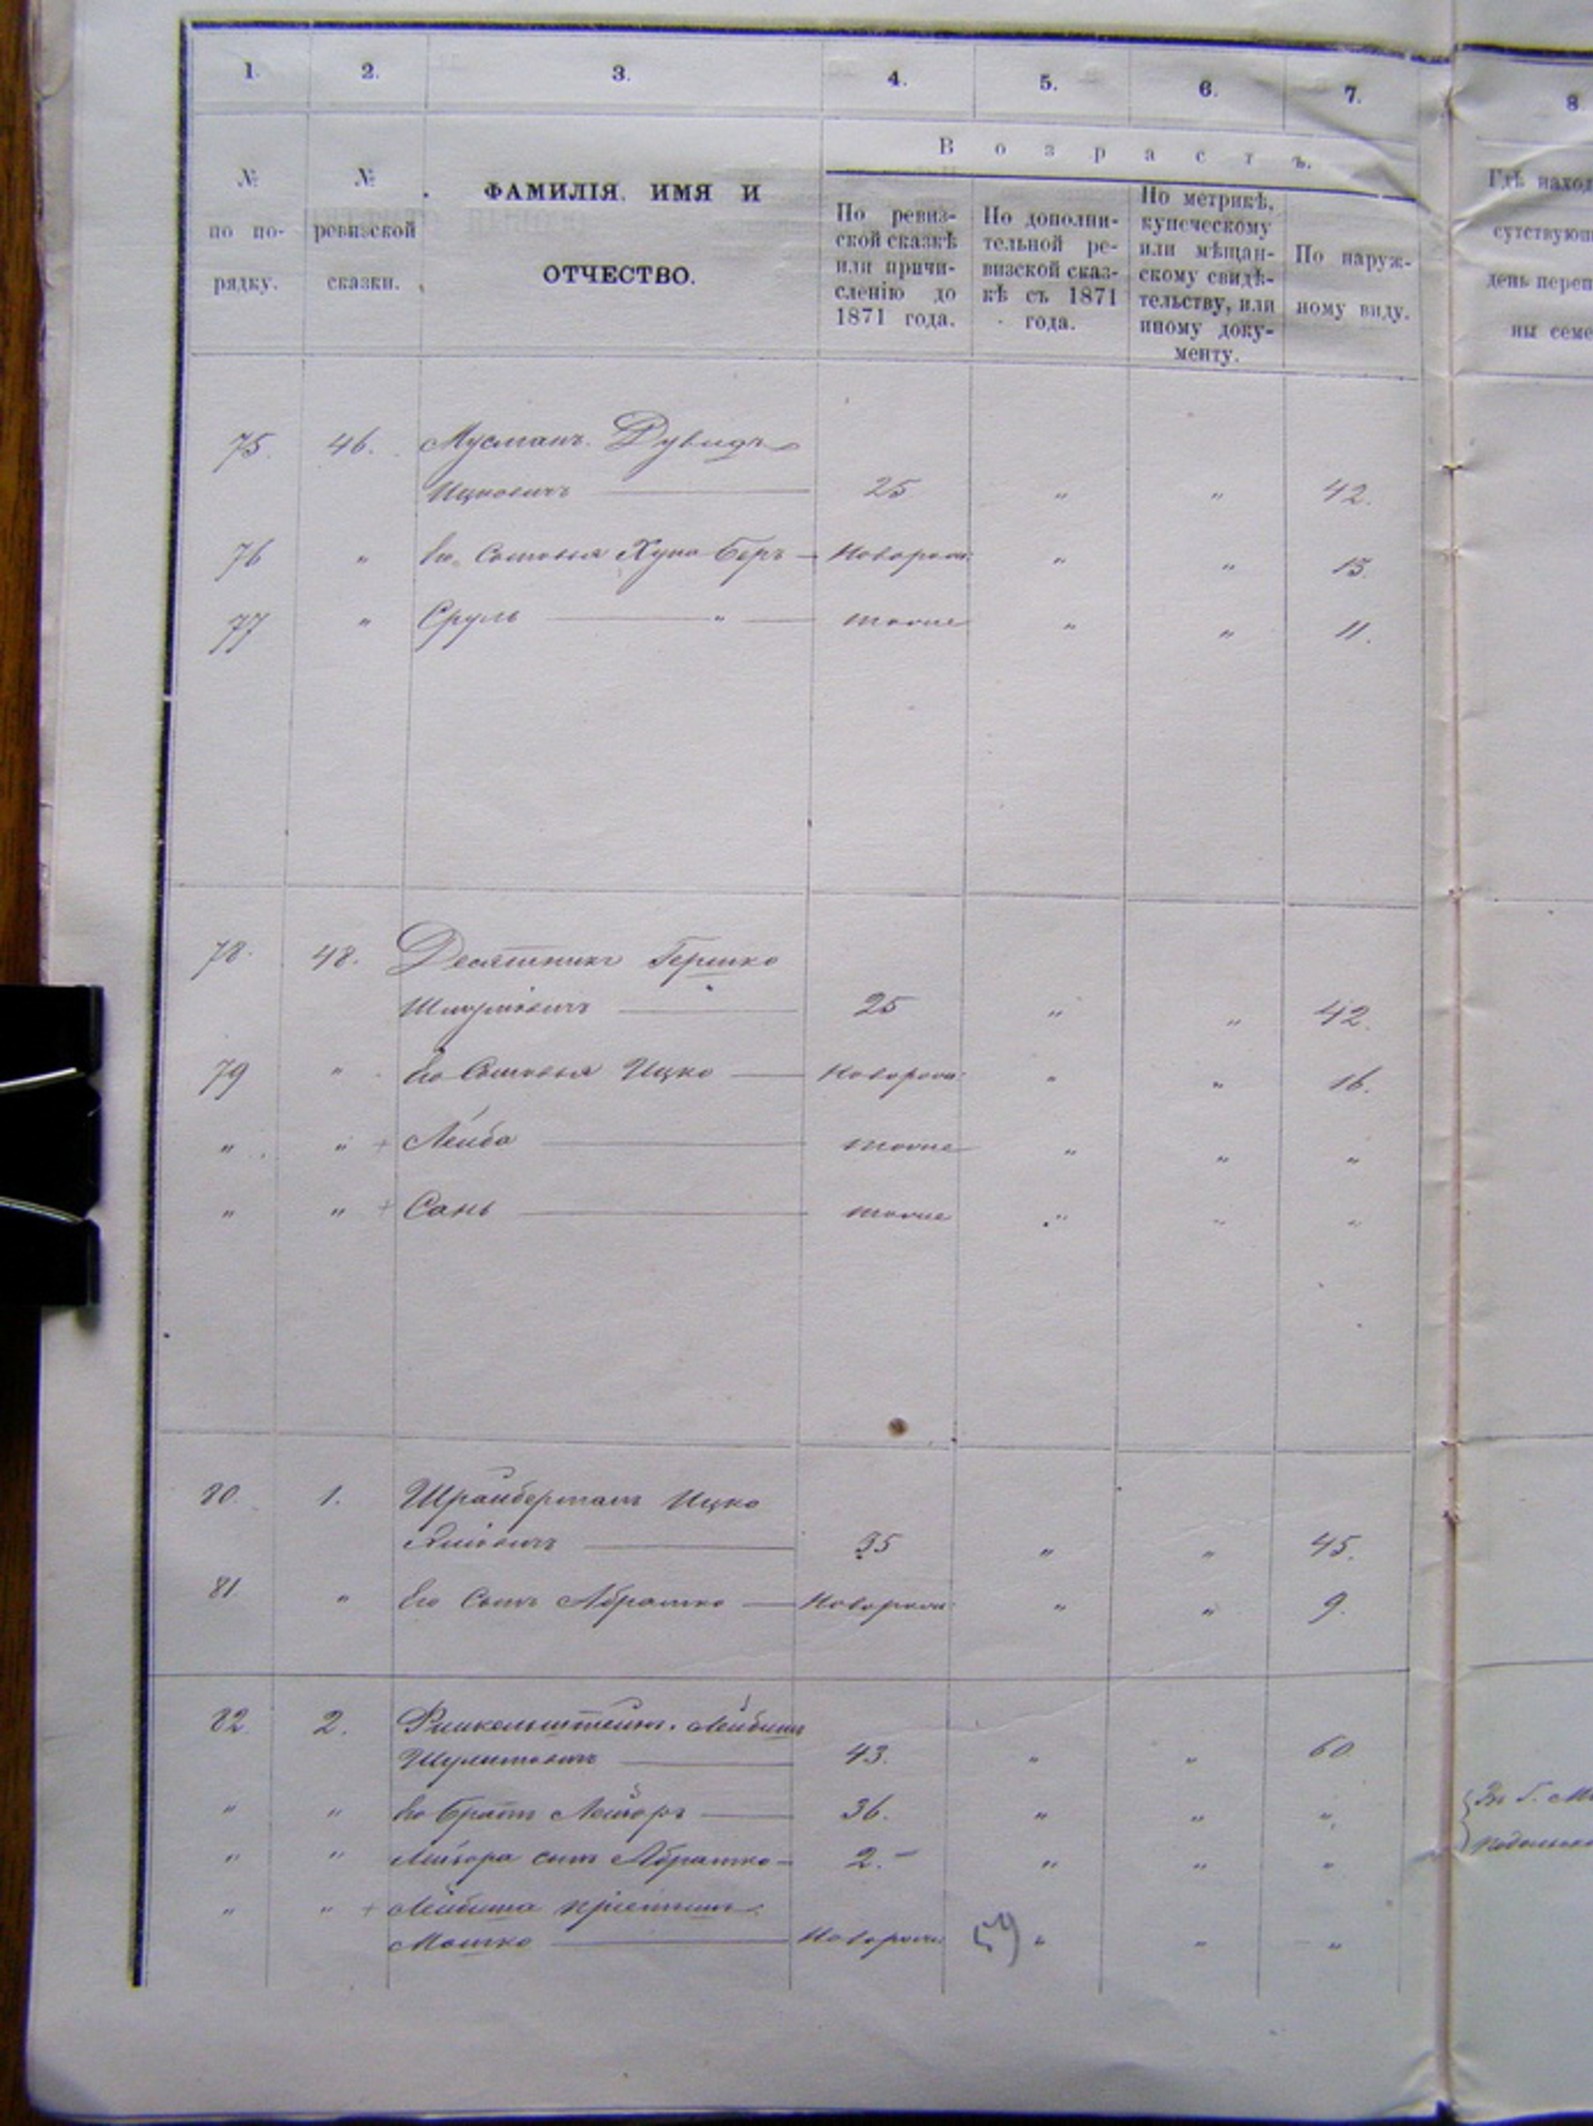 1. 2. 3. 4. 5. 6. 7. 8
В о з р а с т ъ.
№ по по-рядку.
№ ревизской сказки.
ФАМИЛІЯ, ИМЯ И
ОТЧЕСТВО.
По ревиз-
ской сказкѣ
или причи-
сленію до
1871 года.
По дополни-
тельной ре-
визской сказ-
кѣ съ 1871
года.
По метрикѣ,
купеческому
или мѣщан-
скому свидѣ-
тельству, или
иному доку-
менту.
По наруж-
ному виду.
Гдѣ наход
сутствующ
день переп
ны семе
75. 46. Мусманъ Дувидъ
Ицковичъ 25 " " 42.
76 " Его Сыновья Хуна Беръ Новорож: " " 15.
77 " Сруль " тоже " " 11.
78. 48. Десятникъ Гершко
Шмулёвичъ 25 " " 42.
79 " Его Сыновья Ицко Новорож: " " 16.
" " + Лейба тоже " " "
" " + Сань тоже " " "
80. 1. Ицко
35 " " 45.
81 " Его Сынъ Абрамко Новорож: " " 9.
82. 2. Лейбишъ
43. " " 60
" " Его братъ Лейзоръ 36. " " "
" " Лейзора сынъ Абрамко 2. " " "
" " + Лейбиша пріемышъ
Мошко Новорож: 59 " " "
Въ г.